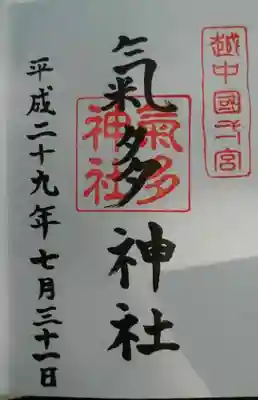 越中國一宮
氣多神社
氣多神社
平成二十九年七月三十一日